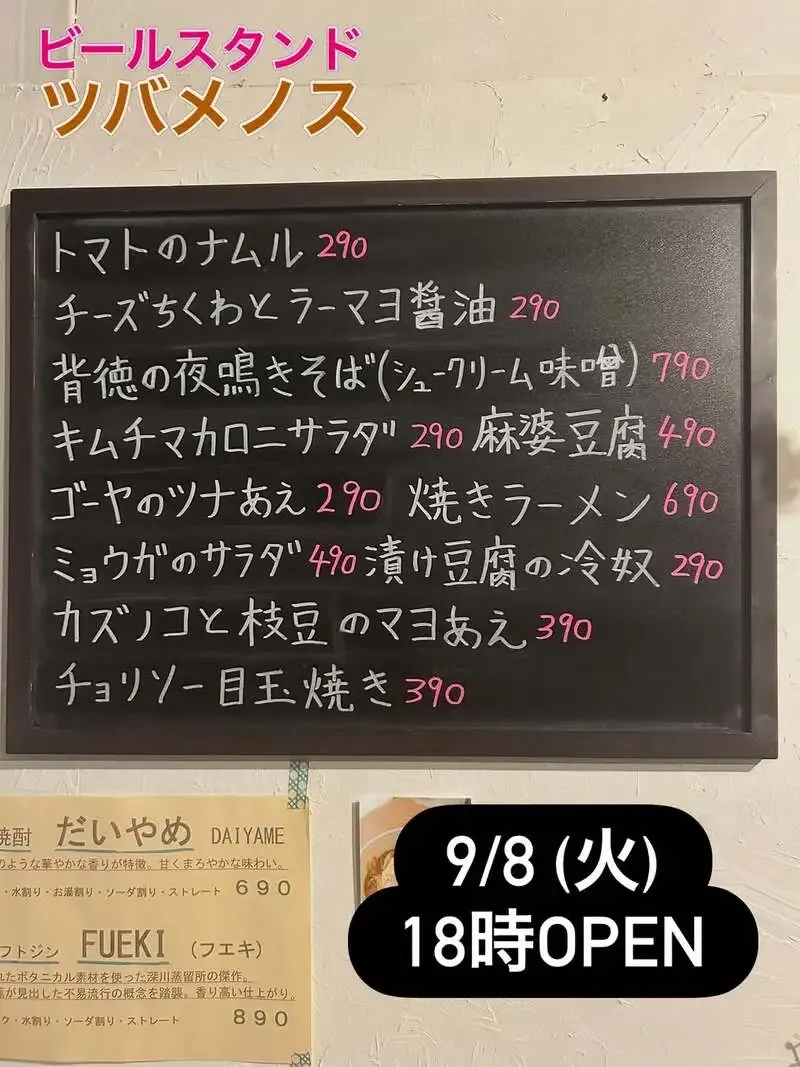 ビールスタンド
ツバメノス
トマトのナムル 290
チーズちくわとラーマヨ醤油 290
背徳の夜鳴きそば(シュークリーム味噌) 790
キムチマカロニサラダ 290 麻婆豆腐 490
ゴーヤのツナあえ 290 焼きラーメン 690
ミョウガのサラダ 490 漬け豆腐の冷奴 290
カズノコと枝豆のマヨあえ 390
チョリソー目玉焼き 390
焼酎 だいやめ DAIYAME
のような華やかな香りが特徴。甘くまろやかな味わい。
・水割り・お湯割り・ソーダ割り・ストレート 690
フトジン FUEKI (フエキ)
れたボタニカル素材を使った深川蒸留所の傑作。
が見出した不易流行の概念を踏襲。香り高い仕上がり。
ク・水割り・ソーダ割り・ストレート 890
9/8 (火)
18時OPEN